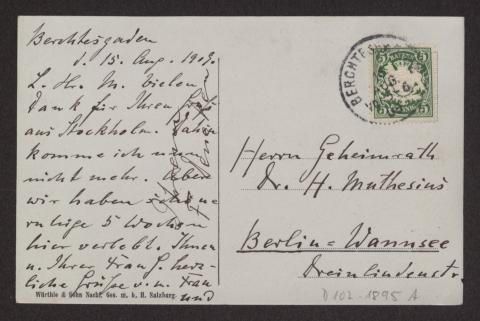 Berchtesgaden
d. 15. Aug. 1909.
L. Hr. M. Vielen
Dank für Ihren Gruß
aus Stockholm. Dahin
komme ich nun
nicht mehr. Aber
wir haben schöne
ruhige 5 Wochen
hier verlebt. Ihnen
u. Ihrer Frau G. herz-
liche Grüße v. m. Frau
und
Würthle & Sohn Nachf. Ges. m. b. H. Salzburg.
BERCHTESGADEN
BAYERN
5 5
Herrn Geheimrath
Dr. H. Muthesius
Berlin=Wannsee
Dreilindenstr.
D 102-1895 A